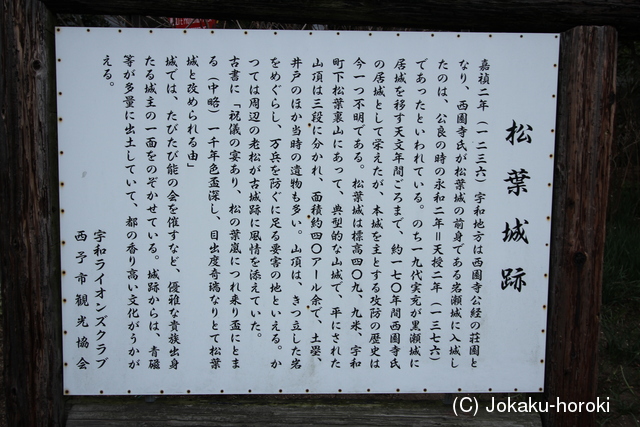 松葉城跡
嘉禎二年（一二三六）宇和地方は西園寺公経の荘園と
なり、西園寺氏が松葉城の前身である岩瀬城に入城し
たのは、公良の時の永和二年＝天授二年（一三七六）
であったといわれている。のち一九代実充が黒瀬城に
居城を移す天文年間ごろまで、約一七〇年間西園寺氏
の居城として栄えたが、本城を主とする攻防の歴史は
今一つ不明である。松葉城は標高四〇九、九米、宇和
町下松葉裏山にあって、典型的な山城で、平にされた
山頂は三段に分かれ、面積約四〇アール余で、土塁、
井戸のほか当時の遺物も多い。山頂は、きつ立した岩
をめぐらし、万兵を防ぐに足る要害の地といえる。か
つては周辺の老松が古城跡に風情を添えていた。
古書に「祝儀の宴あり、松の葉嵐につれ来り盃にとま
る（中略）一千年色盃深し、目出度奇瑞なりとて松葉
城と改められる由」
城では、たびたび能の会を催すなど、優雅な貴族出身
たる城主の一面をのぞかせている。城跡からは、青磁
等が多量に出土していて、都の香り高い文化がうかが
える。
宇和ライオンズクラブ
西予市観光協会
(C) Jokaku-horoki